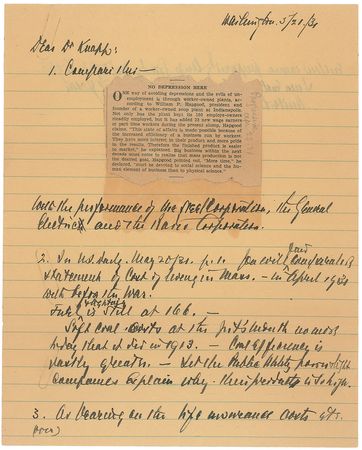 Washington 5/21/31
Dear Dr Knapp:
1. Compare this —
NO DEPRESSION HERE
ONE way of avoiding depressions and the evils of un-
employment is through worker-owned plants, according
to William P. Hapgood, president and
founder of a worker-owned soup plant at Indianapolis.
Not only has the plant kept its 150 employes
steadily employed, but it has added 13 new wage earners
or part time workers during the present slump, Hapgood
claims. "This state of affairs is made possible because
of the increased efficiency of a business run by workers.
They have more interest in their product and more pride
in the results. Therefore the finished product is easier
to market," he explained. Big business within the next
decade must come to realize that mass production is not
the desired goal, Hapgood pointed out. "More time," he
declared, "must be devoted to social science and the human
element than to physical science."
with the performance of the Steel Corporation, the General
Electric and the Radio Corporation.
2. In U.S. Daily May 20/31. p. 11 you will find
statement of Cost of living in Mass. — in April 1931
with before the War.
Fuel & light is still at 166. —
Soft Coal costs at the pits mouth no more
today than it did in 1913. — Coal efficiency is
vastly greater. — Let the Public Utility
Companies explain why their product is so high.
3. As bearing on the life insurance costs etc.
(over)